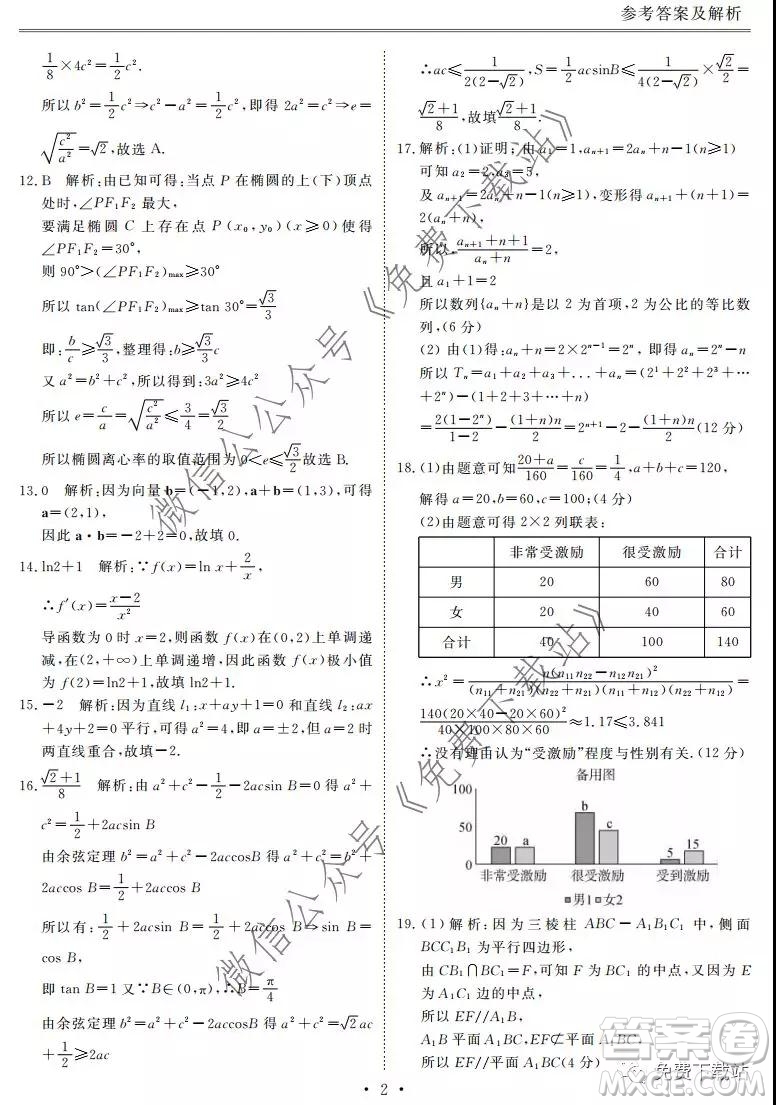 参考答案及解析
1/8×4c²=1/2c².
所以 b²=1/2c²⇒c²-a²=1/2c²,即得 2a²=c²⇒e=
√(c²/a²)=√2,故选 A.
12.B 解析:由已知可得:当点 P 在椭圆的上(下)顶点
处时,∠PF₁F₂ 最大,
要满足椭圆 C 上存在点 P(x₀,y₀)(x≥0)使得
∠PF₁F₂=30°,
则 90°>(∠PF₁F₂)max≥30°
所以 tan(∠PF₁F₂)max≥tan 30°=√3/3
即:b/c≥√3/3,整理得:b≥√3/3c
又 a²=b²+c²,所以得到:3a²≥4c²
所以 e=c/a=√(c²/a²)≤√(3/4)=√3/2
所以椭圆离心率的取值范围为 0<e≤√3/2故选 B.
13.0 解析:因为向量 b=(-1,2),a+b=(1,3),可得
a=(2,1),
因此 a·b=-2+2=0,故填 0.
14.ln2+1 解析:∵f(x)=ln x+2/x,
∴f′(x)=(x-2)/x²
导函数为 0 时 x=2,则函数 f(x)在(0,2)上单调递
减,在(2,+∞)上单调递增,因此函数 f(x)极小值
为 f(2)=ln2+1,故填 ln2+1.
15.-2 解析:因为直线 l₁:x+ay+1=0 和直线 l₂:ax
+4y+2=0 平行,可得 a²=4,即 a=±2,但 a=2 时
两直线重合,故填-2.
16.(√2+1)/8 解析:由 a²+c²-1/2-2acsin B=0 得 a²+
c²=1/2+2acsin B
由余弦定理 b²=a²+c²-2accosB 得 a²+c²=b²+
2accos B=1/2+2accos B
所以有:1/2+2acsin B=1/2+2accos B⇒sin B=
cos B,
即 tan B=1 又∵B∈(0,π),∴B=π/4
由余弦定理 b²=a²+c²-2accosB 得 a²+c²=√2ac
+1/2≥2ac
∴ac≤1/(2(2-√2)),S=1/2acsinB≤1/(4(2-√2))×√2/2=
(√2+1)/8,故填(√2+1)/8.
17.解析:(1)证明:由 a₁=1,aₙ₊₁=2aₙ+n-1(n≥1)
可知 a₂=2,a₃=5,
及 aₙ₊₁=2aₙ+n-1(n≥1),变形得 aₙ₊₁+(n+1)=
2(aₙ+n),
所以,(aₙ₊₁+n+1)/(aₙ+n)=2,
且 a₁+1=2
所以数列{aₙ+n}是以 2 为首项,2 为公比的等比数
列,(6 分)
(2) 由(1)得:aₙ+n=2×2ⁿ⁻¹=2ⁿ, 即得 aₙ=2ⁿ-n
所以 Tₙ=a₁+a₂+a₃+...+aₙ=(2¹+2²+2³+…
+2ⁿ)-(1+2+3+…+n)
=2(1-2ⁿ)/(1-2)-(1+n)n/2=2ⁿ⁺¹-2-(1+n)n/2(12 分)
18.(1)由题意可知(20+a)/160=c/160=1/4,a+b+c=120,
解得 a=20,b=60,c=100;(4 分)
(2)由题意可得 2×2 列联表:
非常受激励 很受激励 合计
男 20 60 80
女 20 40 60
合计 40 100 140
∴x²=n(n₁₁n₂₂-n₁₂n₂₁)²/((n₁₁+n₂₁)(n₁₂+n₂₂)(n₁₁+n₁₂)(n₂₁+n₂₂))=
140(20×40-20×60)²/(40×100×80×60)≈1.17≤3.841
∴没有理由认为“受激励”程度与性别有关.(12 分)
备用图
100
50
0
20 a b c 5 15
非常受激励 很受激励 受到激励
■男1■女2
19.(1) 解析:因为三棱柱 ABC-A₁B₁C₁ 中,侧面
BCC₁B₁ 为平行四边形,
由 CB₁∩BC₁=F,可知 F 为 BC₁ 的中点,又因为 E
为 A₁C₁ 边的中点,
所以 EF//A₁B,
A₁B⊂平面 A₁BC,EF⊄平面 A₁BC
所以 EF//平面 A₁BC(4 分)
· 2 ·
微信公众号《免费下载站》
微信公众号《免费下载站》
免费下载站
答案圈
MXQE.COM